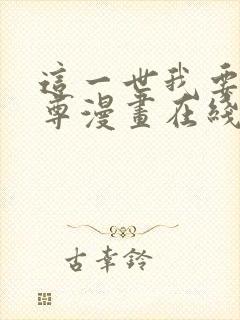 這一世我要
尊漫畫在綫
古幸鈴